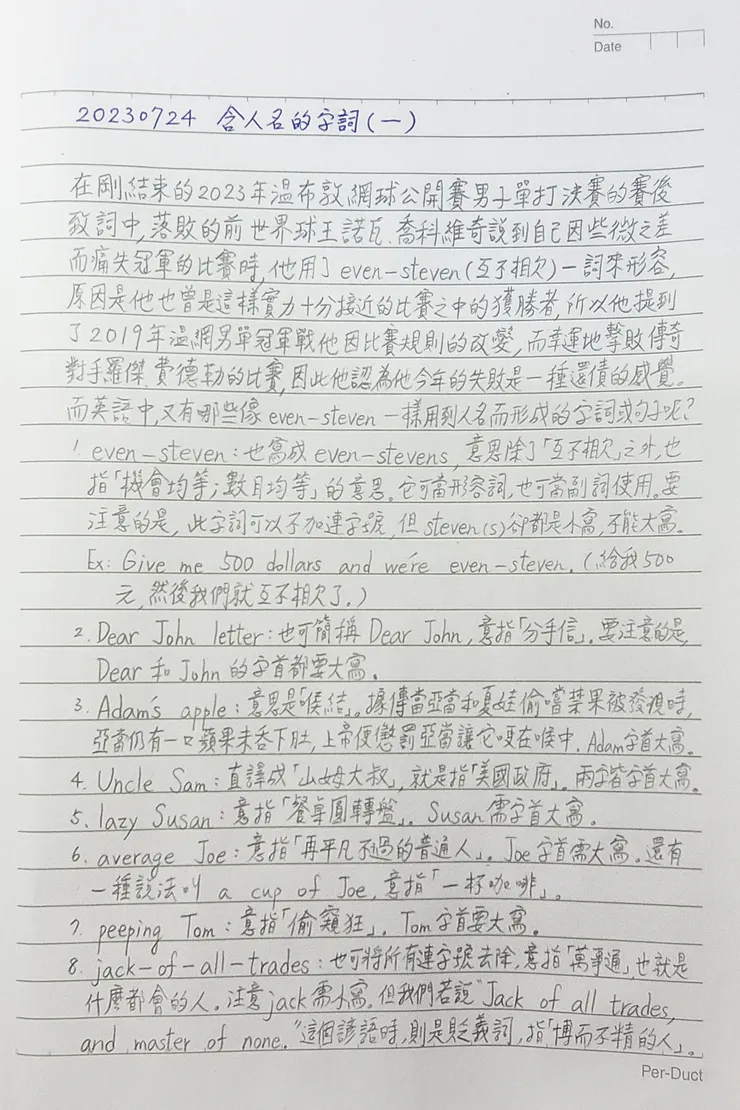 No.
Date
20230724 含人名的字詞(一)
在剛結束的2023年溫布敦網球公開賽男子單打決賽的賽後
致詞中,落敗的前世界球王諾瓦.喬科維奇說到自己因些微之差
而痛失冠軍的比賽時,他用了even-steven(互不相欠)一詞來形容,
原因是他也曾是這樣實力十分接近的比賽之中的獲勝者,所以他提到
了2019年溫網男單冠軍戰他因比賽規則的改變,而幸運地擊敗傳奇
對手羅傑.費德勒的比賽,因此他認為他今年的失敗是一種還債的感覺。
而英語中,又有哪些像even-steven一樣用到人名而形成的字詞或句子呢?
1. even-steven:也寫成even-stevens,意思除了「互不相欠」之外,也
指「機會均等;數目均等」的意思。它可當形容詞,也可當副詞使用。要
注意的是,此字詞可以不加連字號,但steven(s)卻都是小寫,不能大寫。
Ex: Give me 500 dollars and we're even-steven. (給我500
元,然後我們就互不相欠了。)
2. Dear John letter:也可簡稱Dear John,意指「分手信」。要注意的是
Dear和John的字首都要大寫。
3. Adam's apple:意思是「喉結」。據傳當亞當和夏娃偷嚐禁果被發現時,
亞當仍有一口蘋果未吞下肚,上帝便懲罰亞當讓它哽在喉中。Adam字首大寫。
4. Uncle Sam:直譯成「山姆大叔」,就是指「美國政府」。兩字皆字首大寫。
5. lazy Susan:意指「餐桌圓轉盤」。Susan需字首大寫。
6. average Joe:意指「再平凡不過的普通人」。Joe字首需大寫。還有
一種說法叫 a cup of Joe,意指「一杯咖啡」。
7. peeping Tom:意指「偷窺狂」。Tom字首要大寫。
8. jack-of-all-trades:也可將所有連字號去除,意指「萬事通」,也就是
什麼都會的人。注意jack需小寫。但我們若說"Jack of all trades,
and master of none."這個諺語時,則是貶義詞,指「博而不精的人」。
Per-Duct